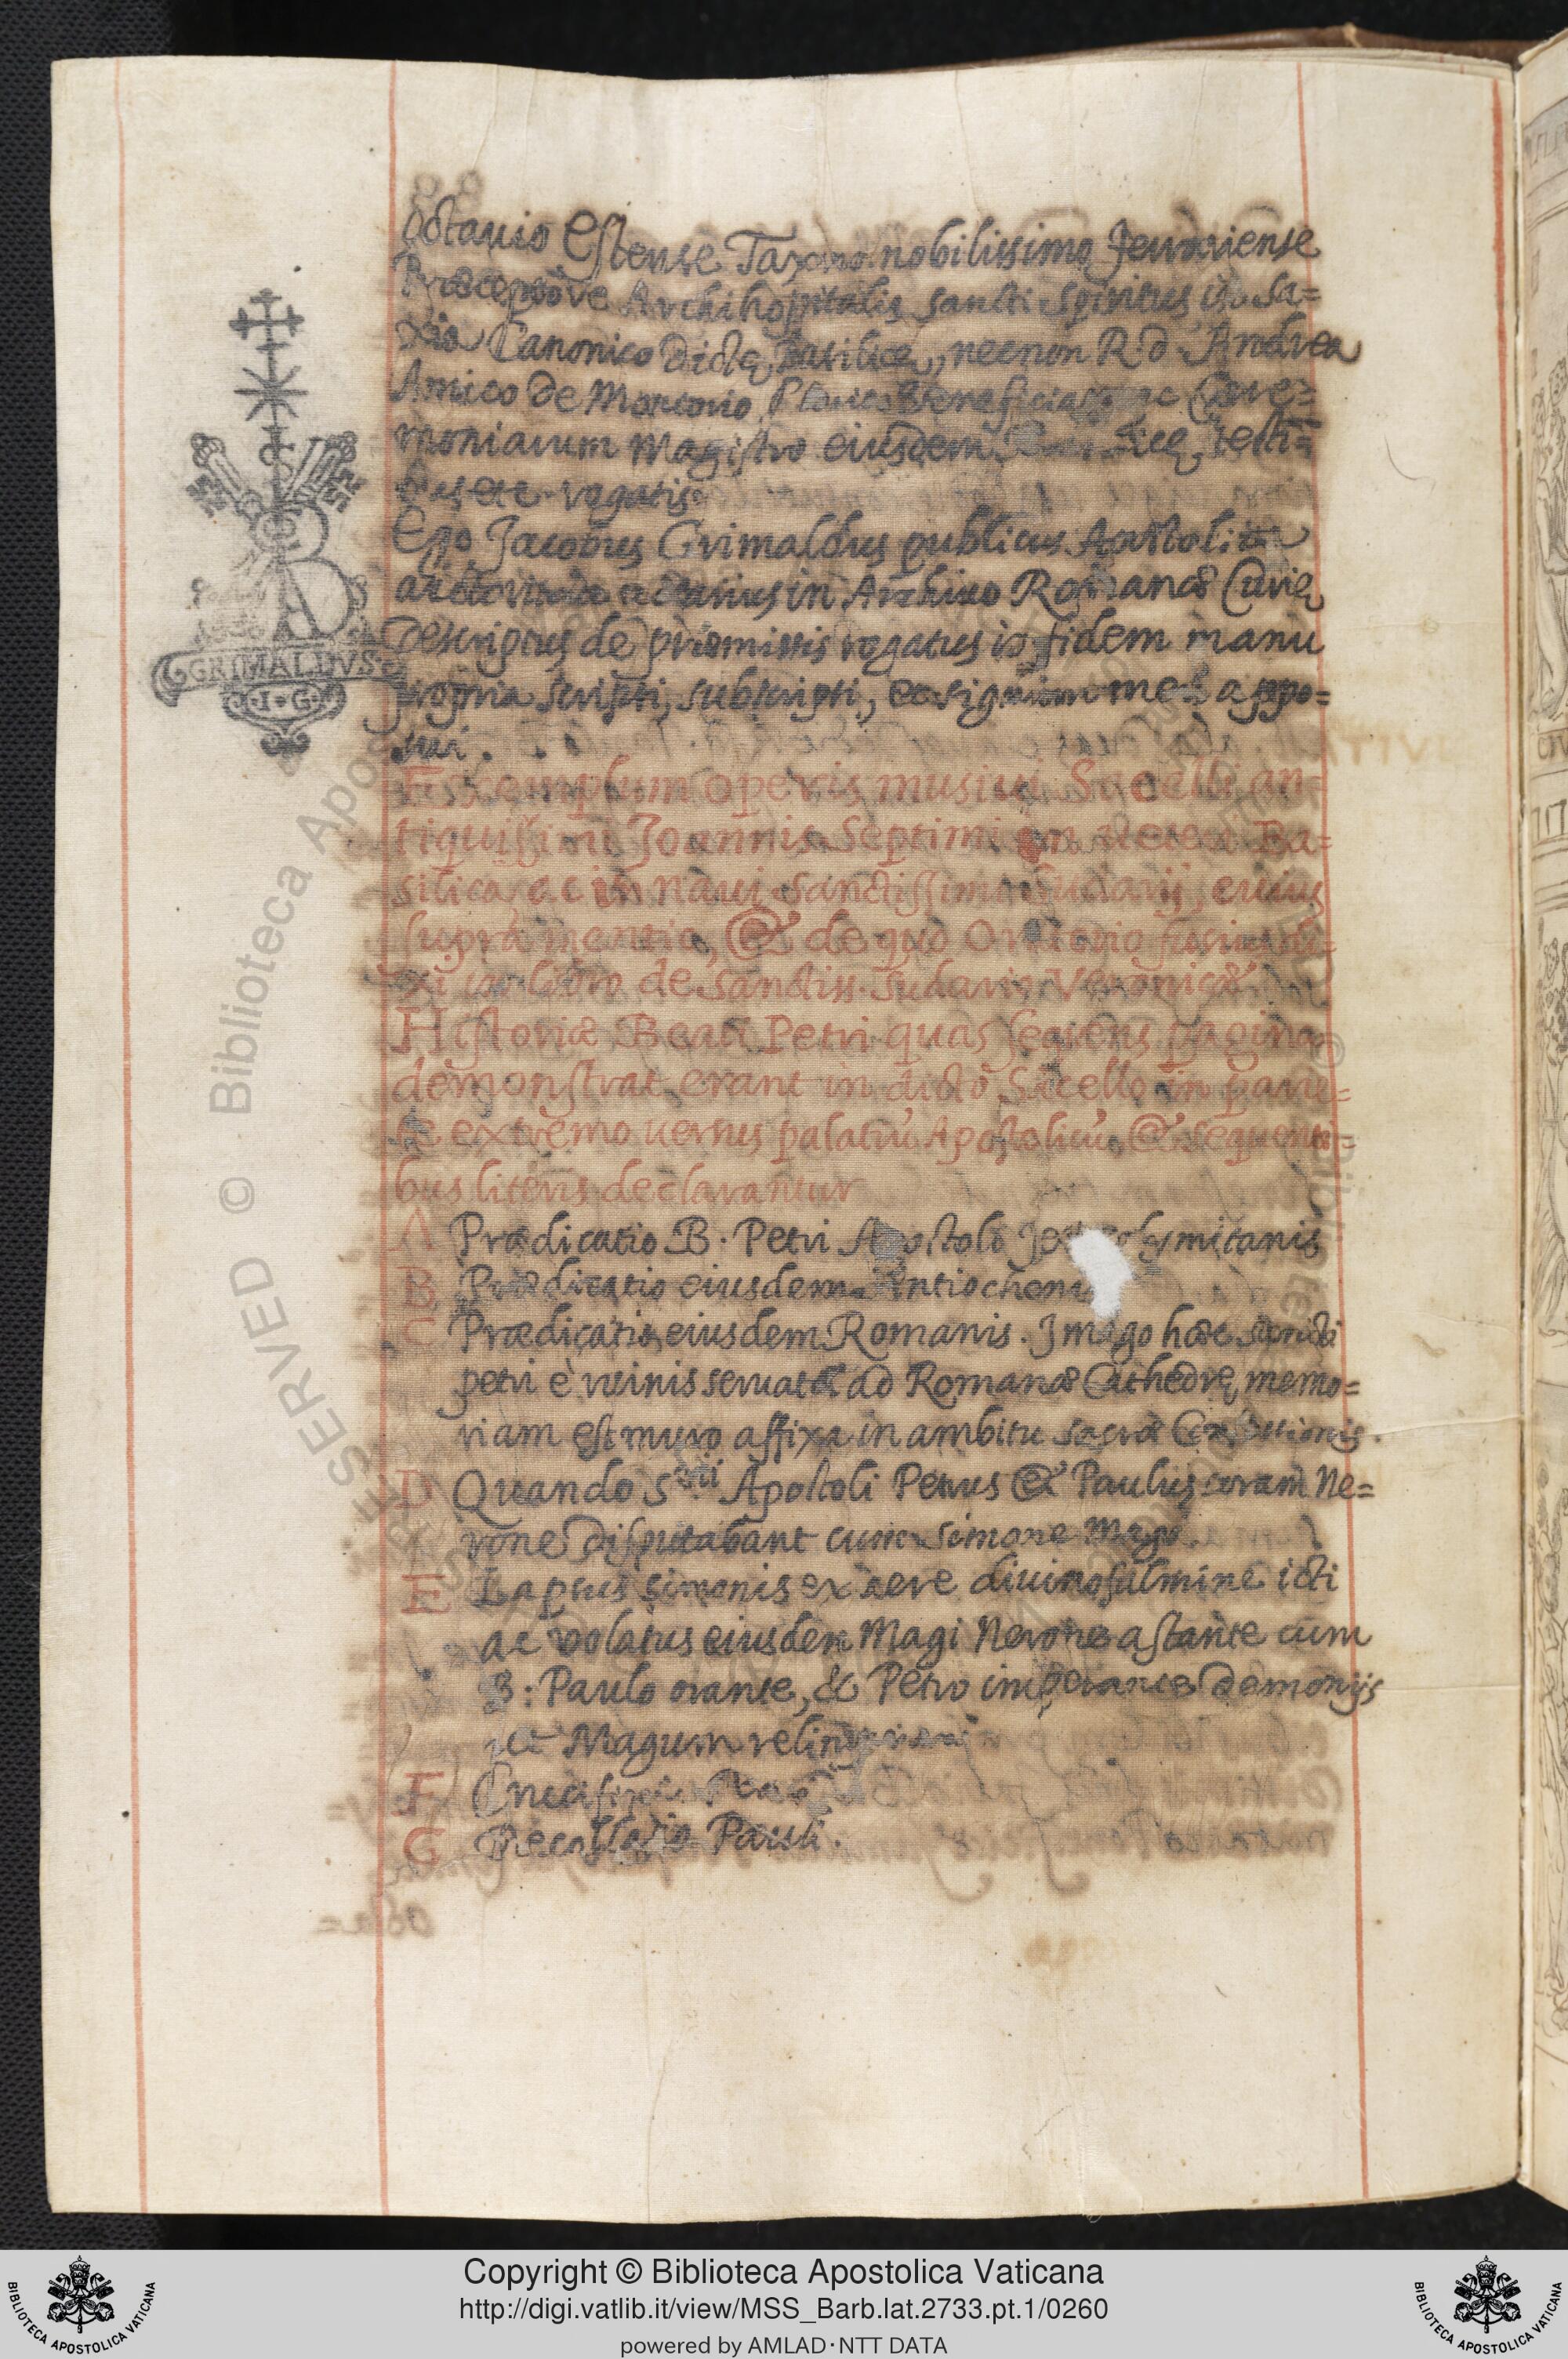 Octauio Estense Taxono nobilissimo Ferrariense
Præceptore Archihospitalis sancti Spiritus in Sa=
xia Canonico dictę Basilicę, necnon R. d. Andrea
Amico de Beneficiato ac Cere=
moniarum Magistro eiusdem Basilicę, testi=
rogatis.
Ego Jacobus Grimaldus publicus Apostolica
auctoritate in Archiuo Romanæ Curię
descriptus de præmissis rogatus in fidem manu
propria scripsi, subscripsi, et signum meū appo=
sui.
GRIMALDVS
I·G·
Exemplum operis musiui Sacelli an=
tiquissimi Joannis Septimi in veteri Ba=
silica ac in naui sanctissimi Sudarij, cuius
supra mentio, & de quo Oratorio fusius di=
xi in libro de Sanctiss. Sudario Veronicæ
Historiæ Beati Petri quas sequens pagina
demonstrat erant in dicto Sacello in parie=
te extremo uersus palatiū Apostolicū, & sequenti=
bus literis declarantur
A Prædicatio B. Petri Apostoli
B Prædicatio eiusdem Antiochenis
C Prædicatio eiusdem Romanis. Imago hæc sancti
petri è ruinis seruata ad Romanæ Cathedrę memo=
riam est muro affixa in ambitu sacræ Confessionis.
D Quando S.cti Apostoli Petrus & Paulus coram Ne=
rone disputabant cum Simone Mago.
E Lapsus Simonis ex aere diuino fulmine icti
ac volatus eiusdem Magi Nerone astante cum
B: Paulo orante, & Petro imperante demonijs
ut Magum relinquant
F
G Decollatio Pauli.
Copyright © Biblioteca Apostolica Vaticana
http://digi.vatlib.it/view/MSS_Barb.lat.2733.pt.1/0260
powered by AMLAD·NTT DATA
BIBLIOTECA APOSTOLICA VATICANA
BIBLIOTECA APOSTOLICA VATICANA